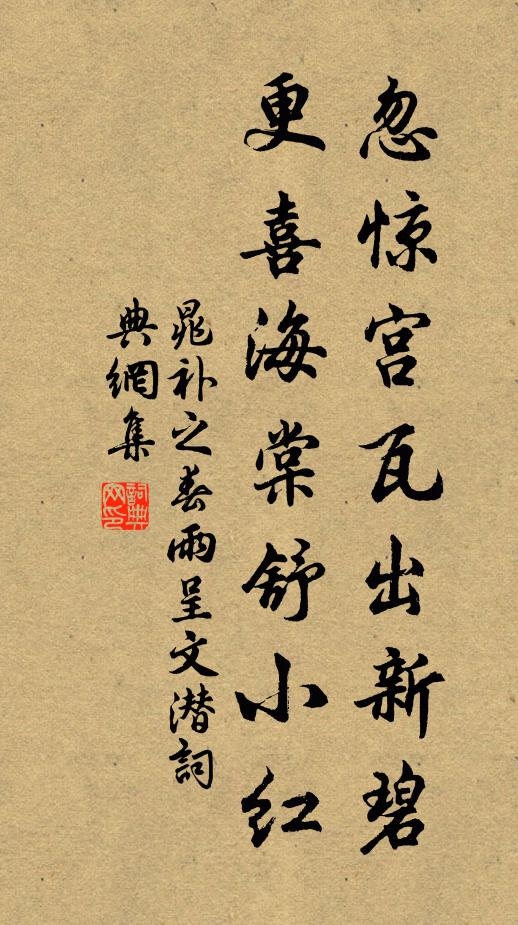 忽惊宫瓦出新碧
更喜海棠舒小红
晁补之春雨呈文潜詞
典網集
詞典
网印